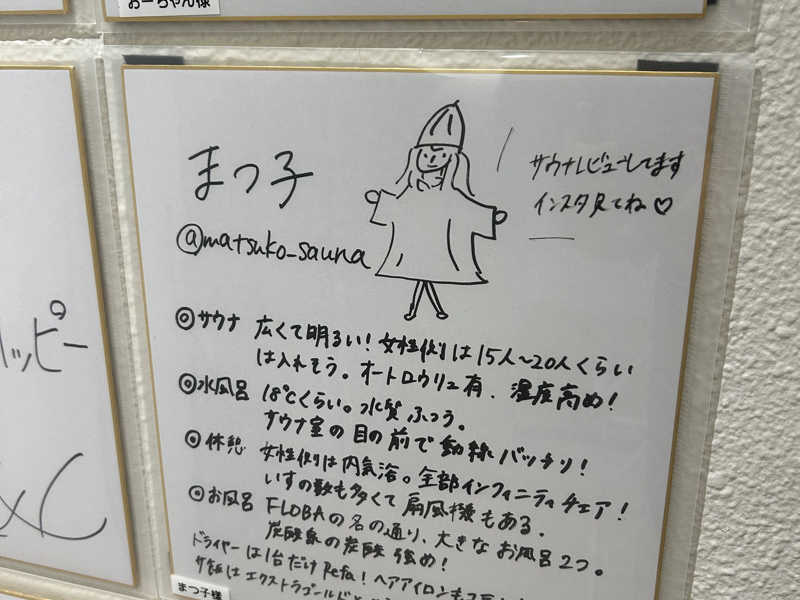 おーちゃん様
まつ子
@matsuko_sauna
サウナレビューしてます
インスタ見てね♡
◎サウナ 広くて明るい！女性側は15人〜20人くらい
は入れそう。オートロウリュ有、湿度高め！
◎水風呂 18℃くらい。水質ふつう。
サウナ室の目の前で動線バッチリ！
◎休憩 女性側は内気浴。全部インフィニティチェア！
いすの数も多くて扇風機もある。
◎お風呂 FLOBAの名の通り、大きなお風呂2つ。
炭酸泉の炭酸強め！
ドライヤーは1台だけRefa！ヘアアイロンも
エクストラゴールド
まつ子様
ッピー